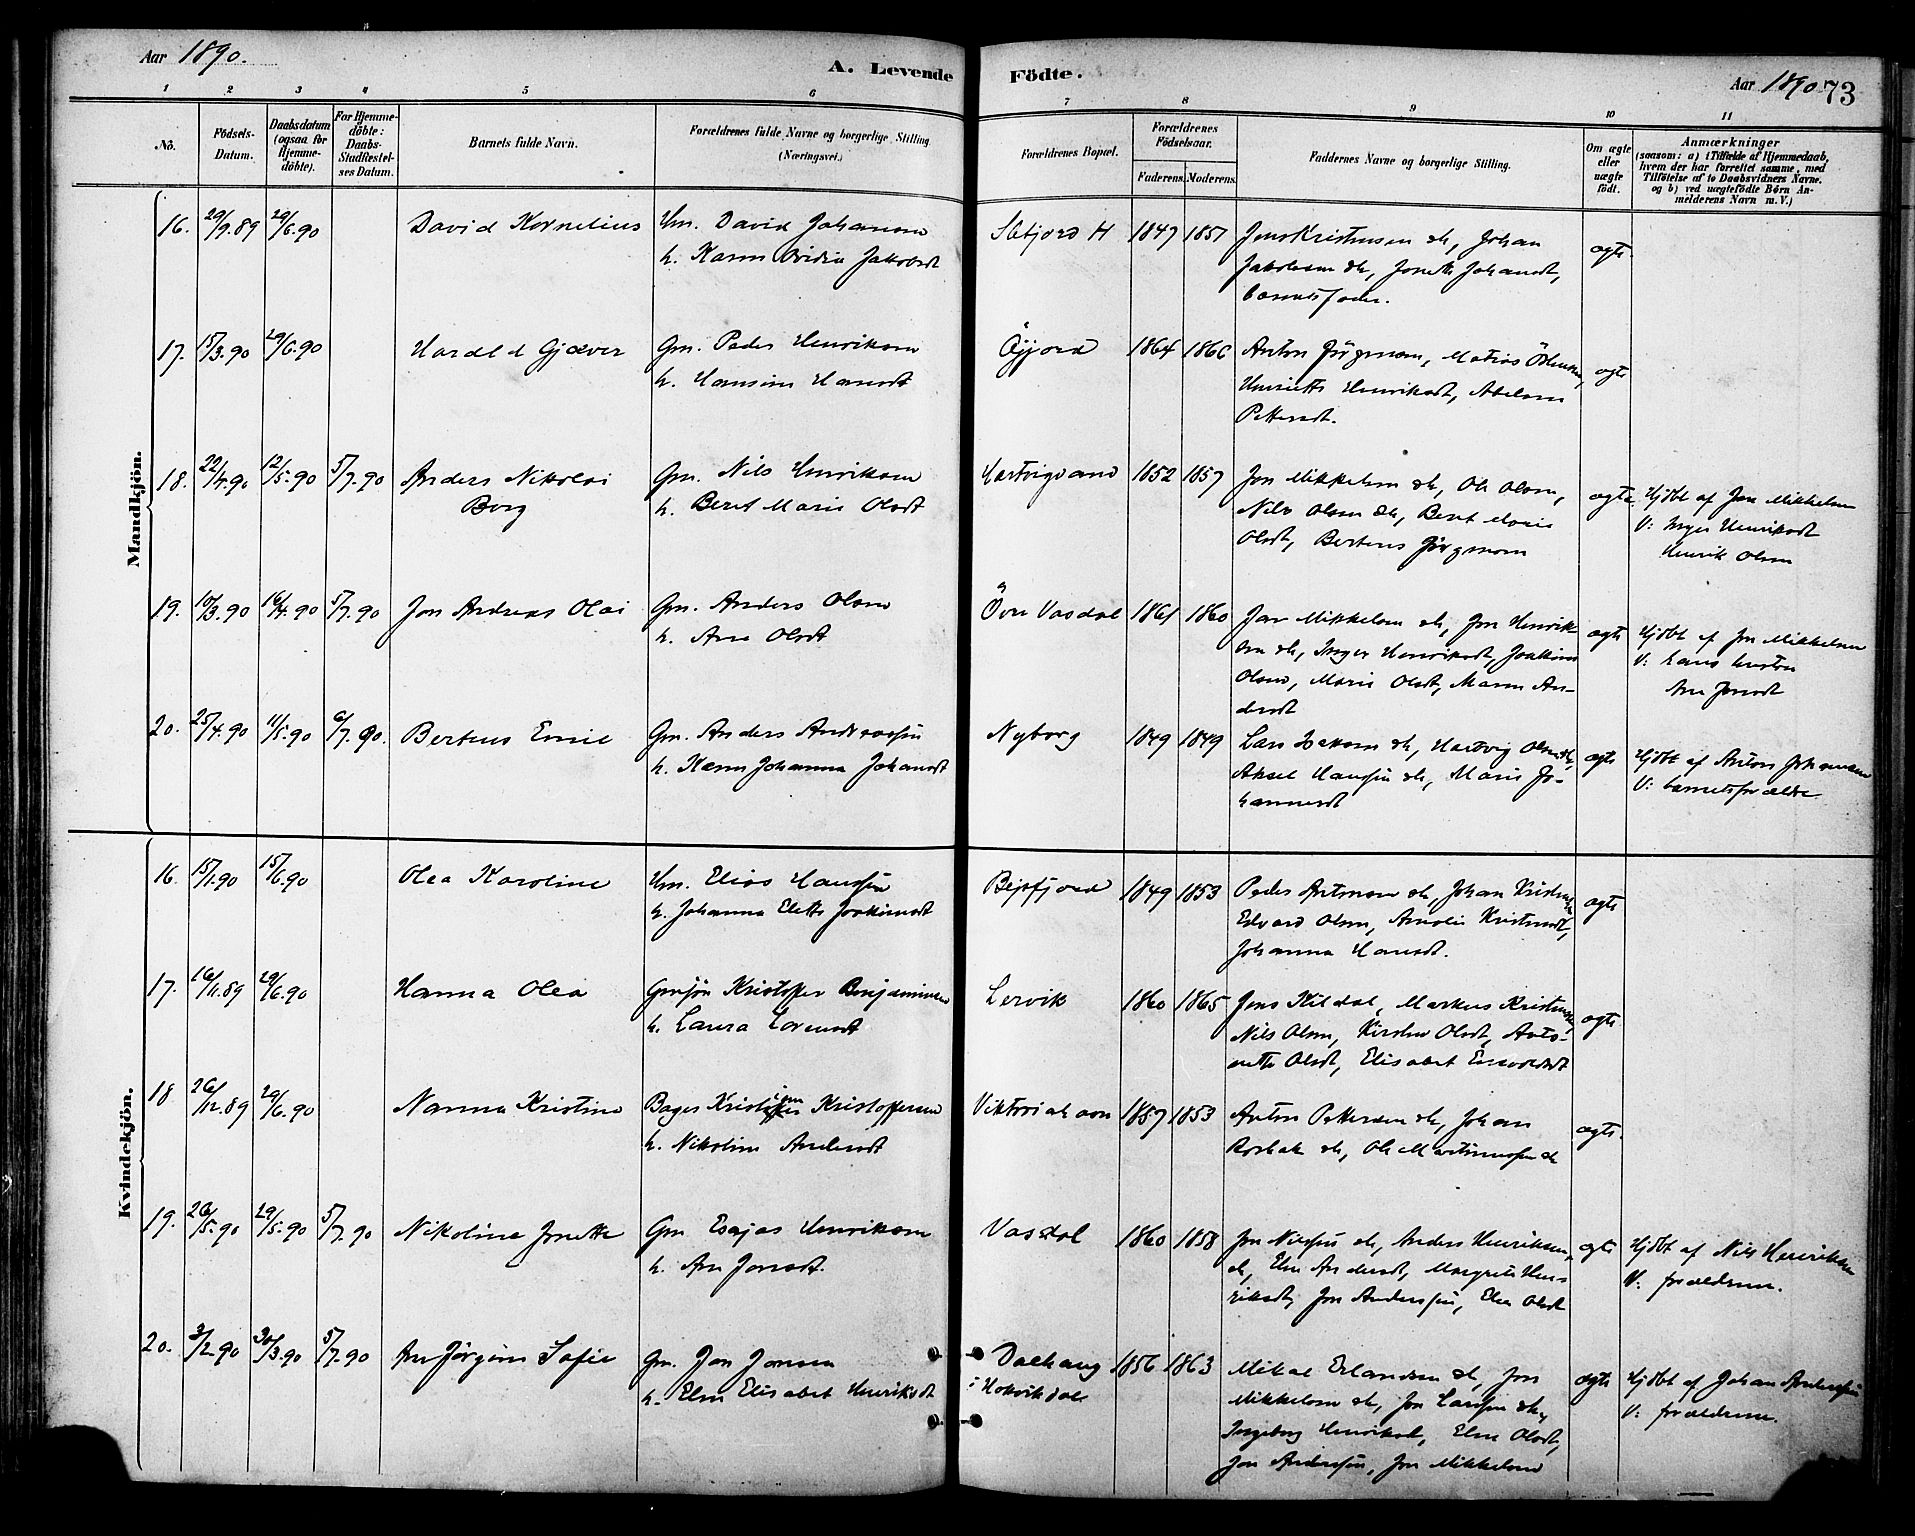 Aar 1890.
A. Levende Födte.
Aar 1890 73
1 2 3 4 5 6 7 8 9 10 11
Nô.
Födsels-Datum.
Daabsdatum (ogsaa for Hjemmedöbte).
For Hjemmedöbte: Daabs-Stadfæstelses Datum.
Barnets fulde Navn.
Forældrenes fulde Navne og borgerlige Stilling (Næringsvei.)
Forældrenes Bopæl.
Forældrenes Födselsaar.
Faderens. Moderens.
Faddernes Navne og borgerlige Stilling.
Om ægte eller uægte födt.
Anmærkninger
(saasom: a) i Tilfælde af Hjemmedaab, hvem der har forrettet samme, med Tilföielse af to Daabsvidners Navne. og b) ved uægtefödte Börn Anmelderens Navn m.V.)
Mandkjön.
16. 29/9.89 29/6.90 David Kornelius Um. David Johansen 1847 1857 Jens Kristensen sk, Johan ægte.
h. Karen Jakobsdt Jakobsen sk, Johansdt,
barnets fader.
17. 15/3.90 29/6.90 Harald Gjæver Gm. Peder Henriksen Öijord 1864 1866 Anton Jörgensen, Matias ægte
h. Hansine Hansdt Henriette Henriksdt,
Pettersdt.
18. 22/4.90 12/5.90 5/7.90 Anders Nikolai Gm. Nils Henriksen Hartvigvand 1852 1857 Jon Mikkelsen sk, Ole Olsen, ægte. Hjdbt af Jon Mikkelsen
Borg h. Beret Marie Olsdt Nils Olsen sk, Beret Marie V: Inger Henriksdt
Olsdt, Berteus Jörgensen Henrik Olsen
19. 10/3.90 16/4.90 5/7.90 Jon Andreas Olai Gm. Anders Olsen Övre Vasdal 1861 1860 Jon Mikkelsen sk, Jon Henrik- ægte Hjdbt af Jon Mikkelsen
h. Ane Olsdt sen sk, Inger Henriksdt, Joakim V: hans hustru
Olsen, Marie Olsdt, Maren An- Ane Jonsdt
dersdt
20. 25/4.90 11/5.90 6/7.90. Berteus Emil Gm. Anders Andreassen Nyborg 1849 1849 Lars Isaksen sk, Hartvig Olsen sk, ægte Hjdbt af Anton Johansen
h. Karen Johanna Johansdt Aksel Hansen sk, Marie Jo- V: barnets forældre.
hannesdt
Kvindekjön.
16. 15/1.90 15/6.90 Olea Karoline Um. Elias Hansen Beisfjord 1849 1853 Peder Antonsen sk, Johan ægte
h. Johanna Elette Joakimsdt Edvard Olsen, Kristensdt,
Johanna Hansdt.
17. 16/11.89 29/6.90 Hanna Olea Gmsjön Kristoffer Benjaminsen Lervik 1860 1865 Jens Kildal, Markus Kristensen, ægte
h. Laura Larsensdt Nils Olsen, Kirsten Olsdt, Anto-
nette Olsdt, Elisabet
18 26/12.89 29/6.90 Nanna Kristine Bager Kristian Kristoffersen Viktoriahavn 1857 1853 Anton Pettersen sk, Johan ægte.
h. Nikoline Andersdt Rosbak sk, Ole Martinussen sk
19. 26/5.90 29/5.90 5/7.90 Nikoline Jonette Gm Esajas Henriksen Vasdal 1860 1858 Jon Nilssen sk, Anders Henriksen ægte Hjdbt af Nils Henriksen
h. Ane Jonsdt. sk, Elen Andersdt, Margrete Hen- V: forældrene.
riksdt, Jon Anderssen, Elen Olsdt
20. 3/2.90 30/3.90 5/7.90 Ane Jörgine Sofie Gm. Jon Jonsen Dalhaug 1856 1863 Mikal Erlandsen sk, Jon ægte Hjdbt af Johan Anderssen
h. Elen Elisabet Henriksdt i Hokvikdale Mikkelsen sk, Jon Larssen sk, V: forældrene.
Ingeborg Henriksdt, Elen Olsdt,
Jon Anderssen, Jon Mikkelsen